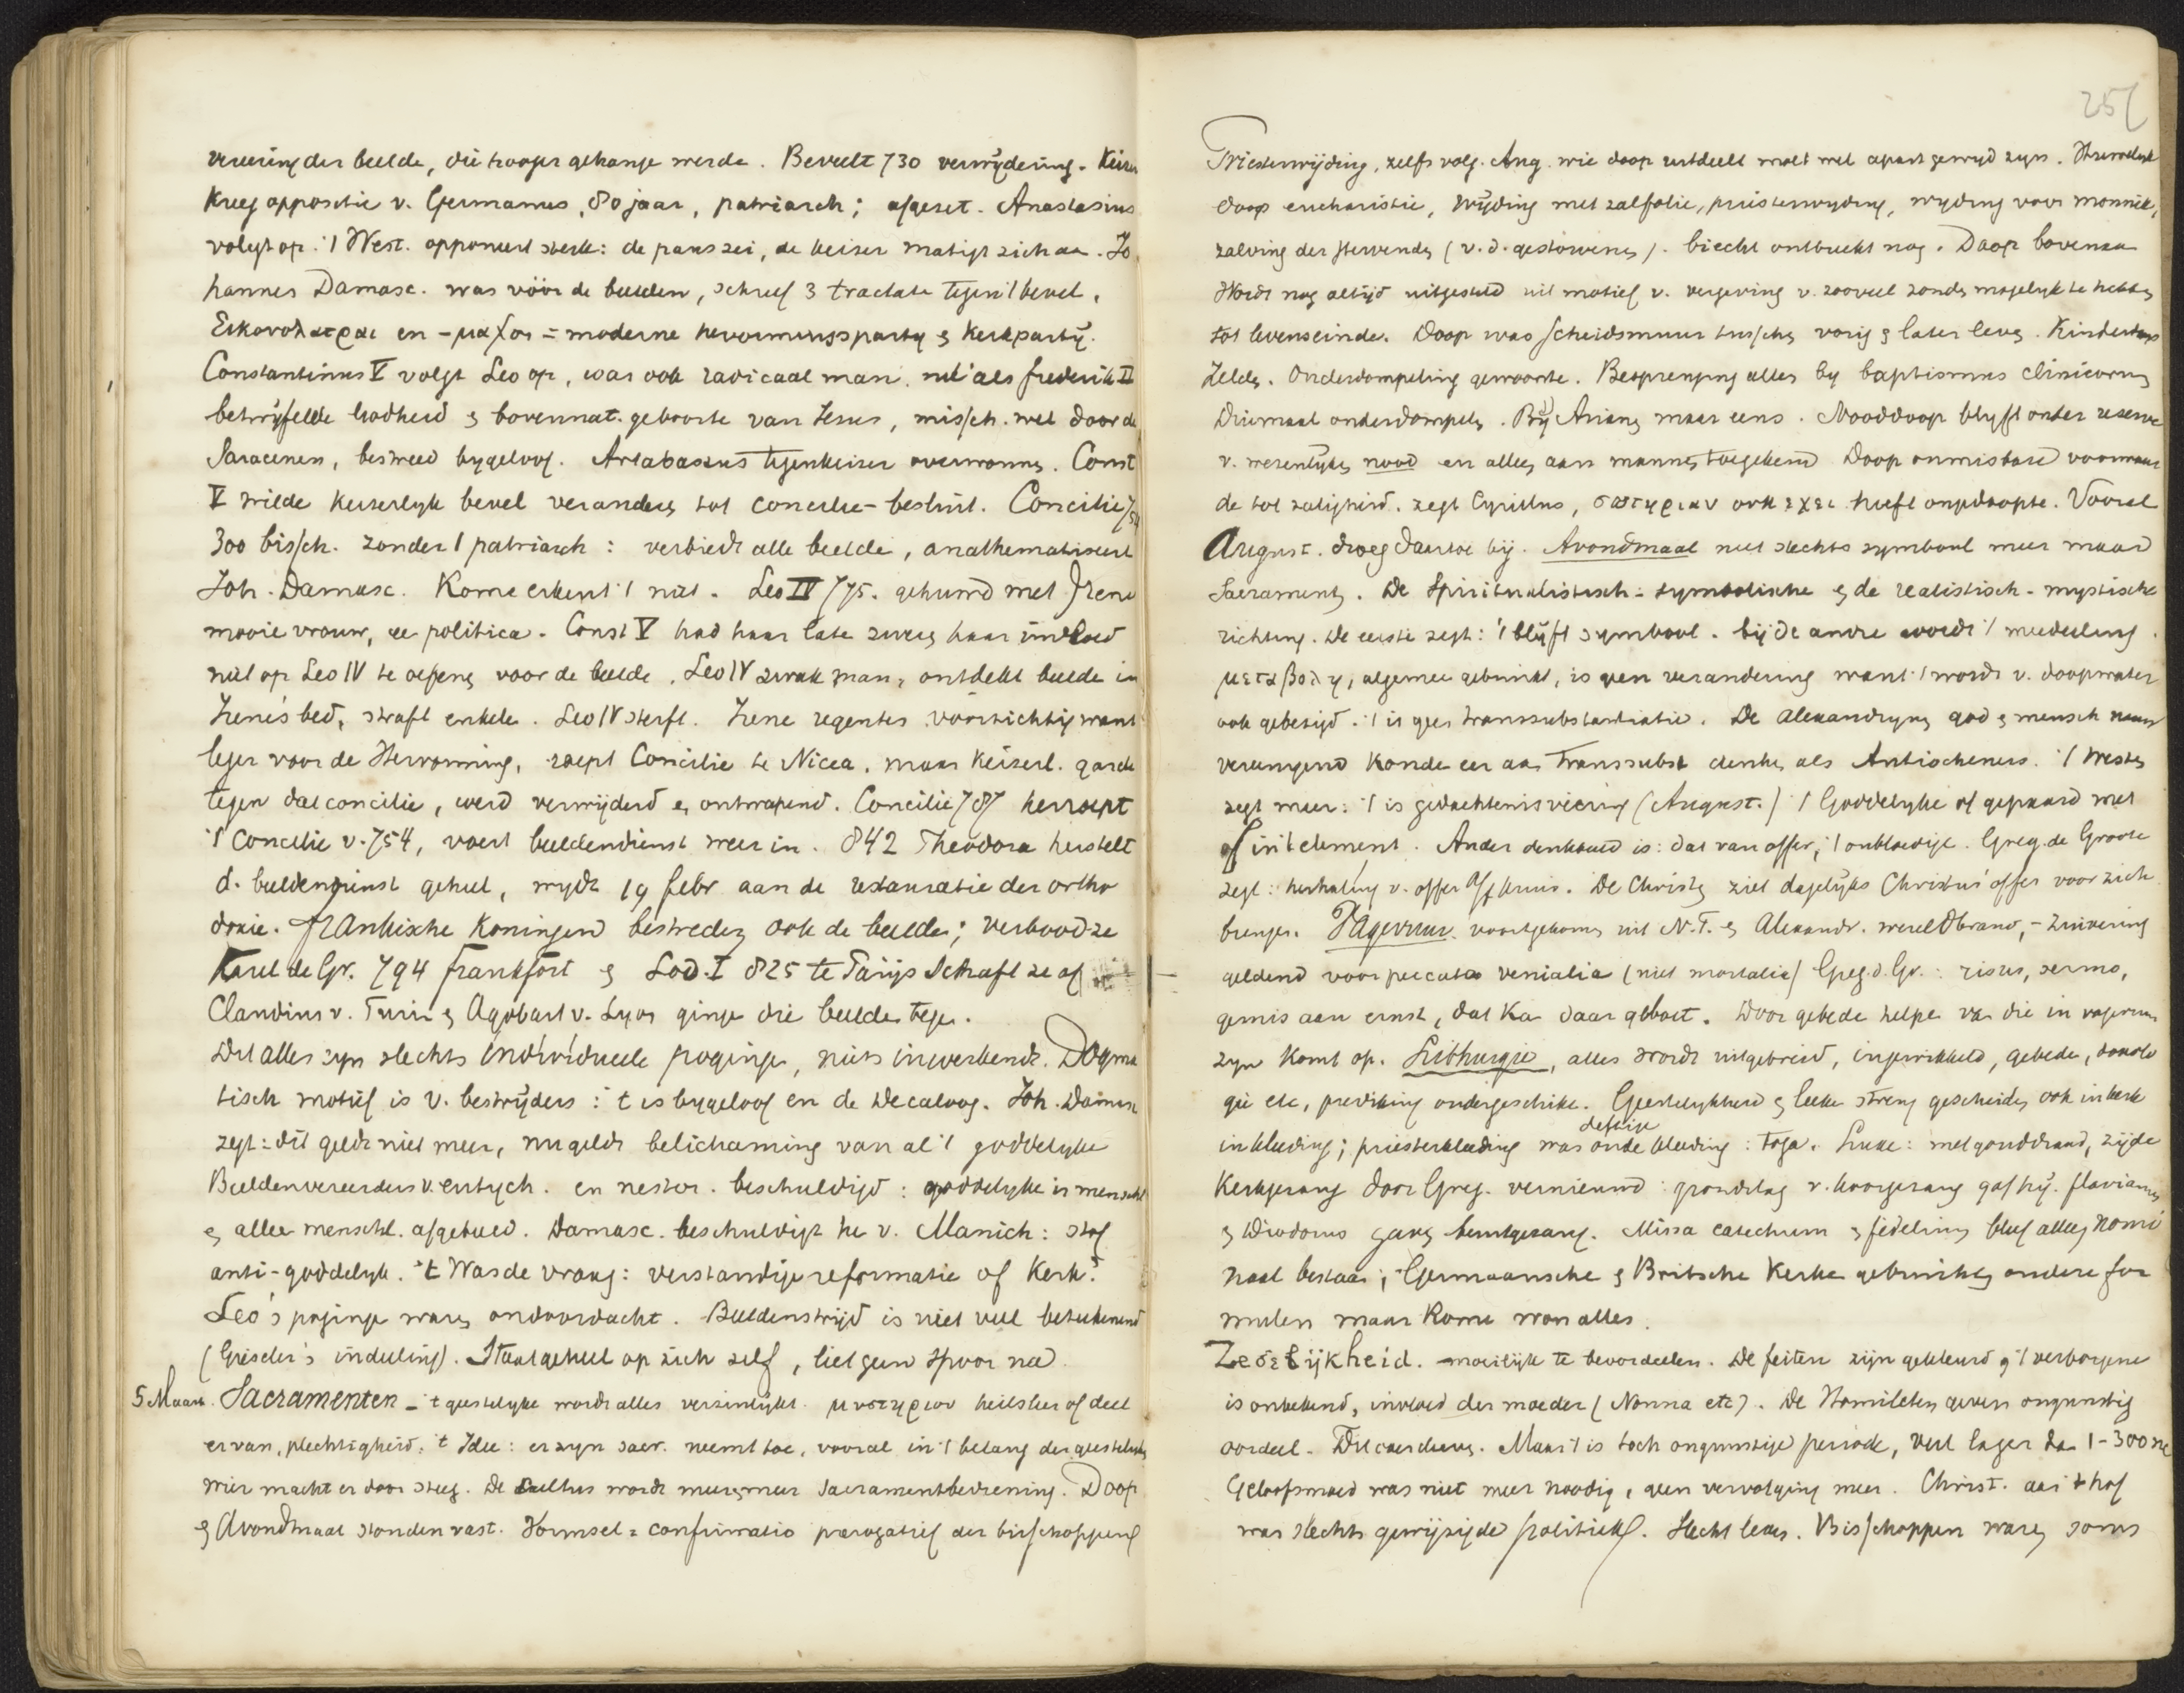 vereering der beelde, die hooger gehange werde. Beveelt 730 verwijdering. Keizer
kreeg oppositie v. Germanus, 80 jaar, patriarch; afgezet. Anastasius
volgt op. 't West. opponeert sterk: de paus zei, de keizer matigt zich aa. Jo
hannes Damasc. was vóór de beelden, schreef 3 tractate tegen 't bevel.
Εικονολατραι en -μαχοι = moderne hervormingsparty & kerkpartij.
Constantinus V volgt Leo op, was ook radicaal man, net als Frederik II
betwijfelde Godheid & bovennat. geboorte van Jezus, missch. wel door de
Saracenen, bestreed bygeloof. Artabaszus tegenkeizer overwonne. Const
V wilde keizerlyk bevel verandere tot concilie-besluit. Concilie 754
300 bissch. zonder 1 patriarch: verbiedt alle beelde, anathematiseert
Joh. Damasc. Rome erkent 't niet. Leo IV 775. gehuwd met Irene
mooie vrouw, ee politica. Const V had haar late zwere haar invloed
niet op Leo IV te oefene voor de beelde. Leo IV zwak man, ontdekt beelde in
Irene's bed, straft enkele. Leo IV sterft. Irene regentes voorzichtig want
leger voor de Hervorming, roept Concilie te Nicea, maar keizerl. garde
tegen dat concilie, werd verwijderd e ontwapend. Concilie 787 herroept
't Concilie v. 754, voert beeldendienst weer in. 842 Theodora herstelt
d. beeldendienst geheel, wydt 19 febr aan de restauratie der ortho
doxie. Frankische Koningen bestreden ook de beelde; verbood ze
Karel de Gr. 794 Frankfort & Lod. I 825 te Parijs schaft ze af
Claudius v. Turin & Agobart v. Lyon ginge die beelde tege.
Dit alles zyn slechts individueele poginge, niets inwerkends. Dogma
tisch motief is v. bestrijders: 't is bygeloof en de Decaloog. Joh. Damasc
zegt: dit geldt niet meer, nu geldt belichaming van al 't goddelyke
Beeldenvereerders v. eutych. en nestor. beschuldigd: goddelyke is menschl
e allee menschl. afgebeeld. Damasc. beschuldigt he v. Manich: stof
anti-goddelyk. 't Was de vraag: verstandige reformatie of Kerk?
Leo's poginge ware ondoordacht. Beeldenstrijd is niet veel beteekenend
(Gieseler's indeeling). Staat geheel op zich zelf, liet geen spoor na.
5 Maart. Sacramenten - 't geestelyke wordt alles verzinlykt. μυστηριον heilsleer of deel
ervan, plechtigheid. 't Idee: er zyn sacr. neemt toe, vooral in 't belang der geestelyke
wier macht er door steeg. De Cultus wordt meer & meer sacramentbediening. Doop
& Avondmaal stonden vast. Vormsel = confirmatio prerogatief der bisschoppen
251
Priesterwijding, zelfs volg. Aug. wie doop uitdeelt moet wel apart gewyd zyn. Huwelyk
doop eucharistie, wijding met zalfolie, priesterwyding, wyding voor monnik,
zalving der stervende (v. d. gestorvene). biecht ontbreekt nog. Doop bovenaa
Wordt nog altijd uitgesteld uit motief v. vergeving v. zooveel zonde mogelyk te hebbe
tot levenseinde. Doop was scheidsmuur tussche vorig & later leve. Kinderdoop
zelde. Onderdompeling gewoonte. Besprenging allee by baptismus clinicorum
Driemaal onderdompele. By Ariane maar eens. Nooddoop blyft onder reserve
v. wezenlyke nood en allee aan manne toegekend Doop onmisbare voorwaar
de tot zaligheid. zegt Cyrillus, σωτηριαν ουκ εχει heeft ongedoopte. Vooral
August. droeg daartoe bij. Avondmaal niet slechts symbool meer maar
Sacrament. De Spiritualistisch-symbolische & de realistisch-mystische
richting. De eerste zegt: 't blijft symbool. bij de andre wordt 't meedeeling.
μεταβολη, algemee gebruikt, is geen verandering want 't wordt v. doopwater
ook gebezigd. 't is gee transsubstantiatie. De Alexandryne god & mensch meer
vereenigend konde eer aa transsubst denke als Antiocheners. 't Weste
zegt meer: 't is gedachtenisviering (August.) 't Goddelyke of gepaard met
of in 't element. Ander denkbeeld is: dat van offer, 't onbloedige. Greg. de Groote
zegt: herhaling v. offer a/h kruis. De Christe ziet dagelyks Christus' offer voor zich
brenge. Vagevuur voortgekome uit N.T. & Alexandr. wereldbrand, - zuivering
geldend voor peccata venialia (niet mortalia) Greg. d. Gr.: risus, sermo,
gemis aan ernst, dat ka daar geboet. Door gebede helpe va die in vagevuur
zyn komt op. Lithurgie, alles wordt uitgebreid, ingewikkeld, gebede, doxolo
gie etc, prediking ondergeschikt. Geestelykheid & leeke streng gescheide ook in kerk
in kleeding; priesterkleeding was deftige oude kleeding: toga. Luxe: met gouddraad, zijde
Kerkgezang door Greg. vernieuwd: grondslag v. koorgezang gaf hij. Flavianus
& Diodorus gave beurtgezang. Missa catechum & fidelium bleef allee nomi
naal bestaa; Germaansche & Britsche Kerke gebruikte andere for
mulen maar Rome won alles.
Zedelijkheid. moeilijk te beoordeelen. De feiten zijn gekleurd & 't verborgene
is onbekend, invloed der moeder (Nonna etc). De Homilete geven ongunstig
oordeel. Maar 't is toch ongunstige periode, veel lager da 1-300 na
Geloofsmoed was niet meer noodig, geen vervolging meer. Christ. aa 't hof
was slechts gewijzigde politiek. Slecht leve. Bisschoppen ware soms